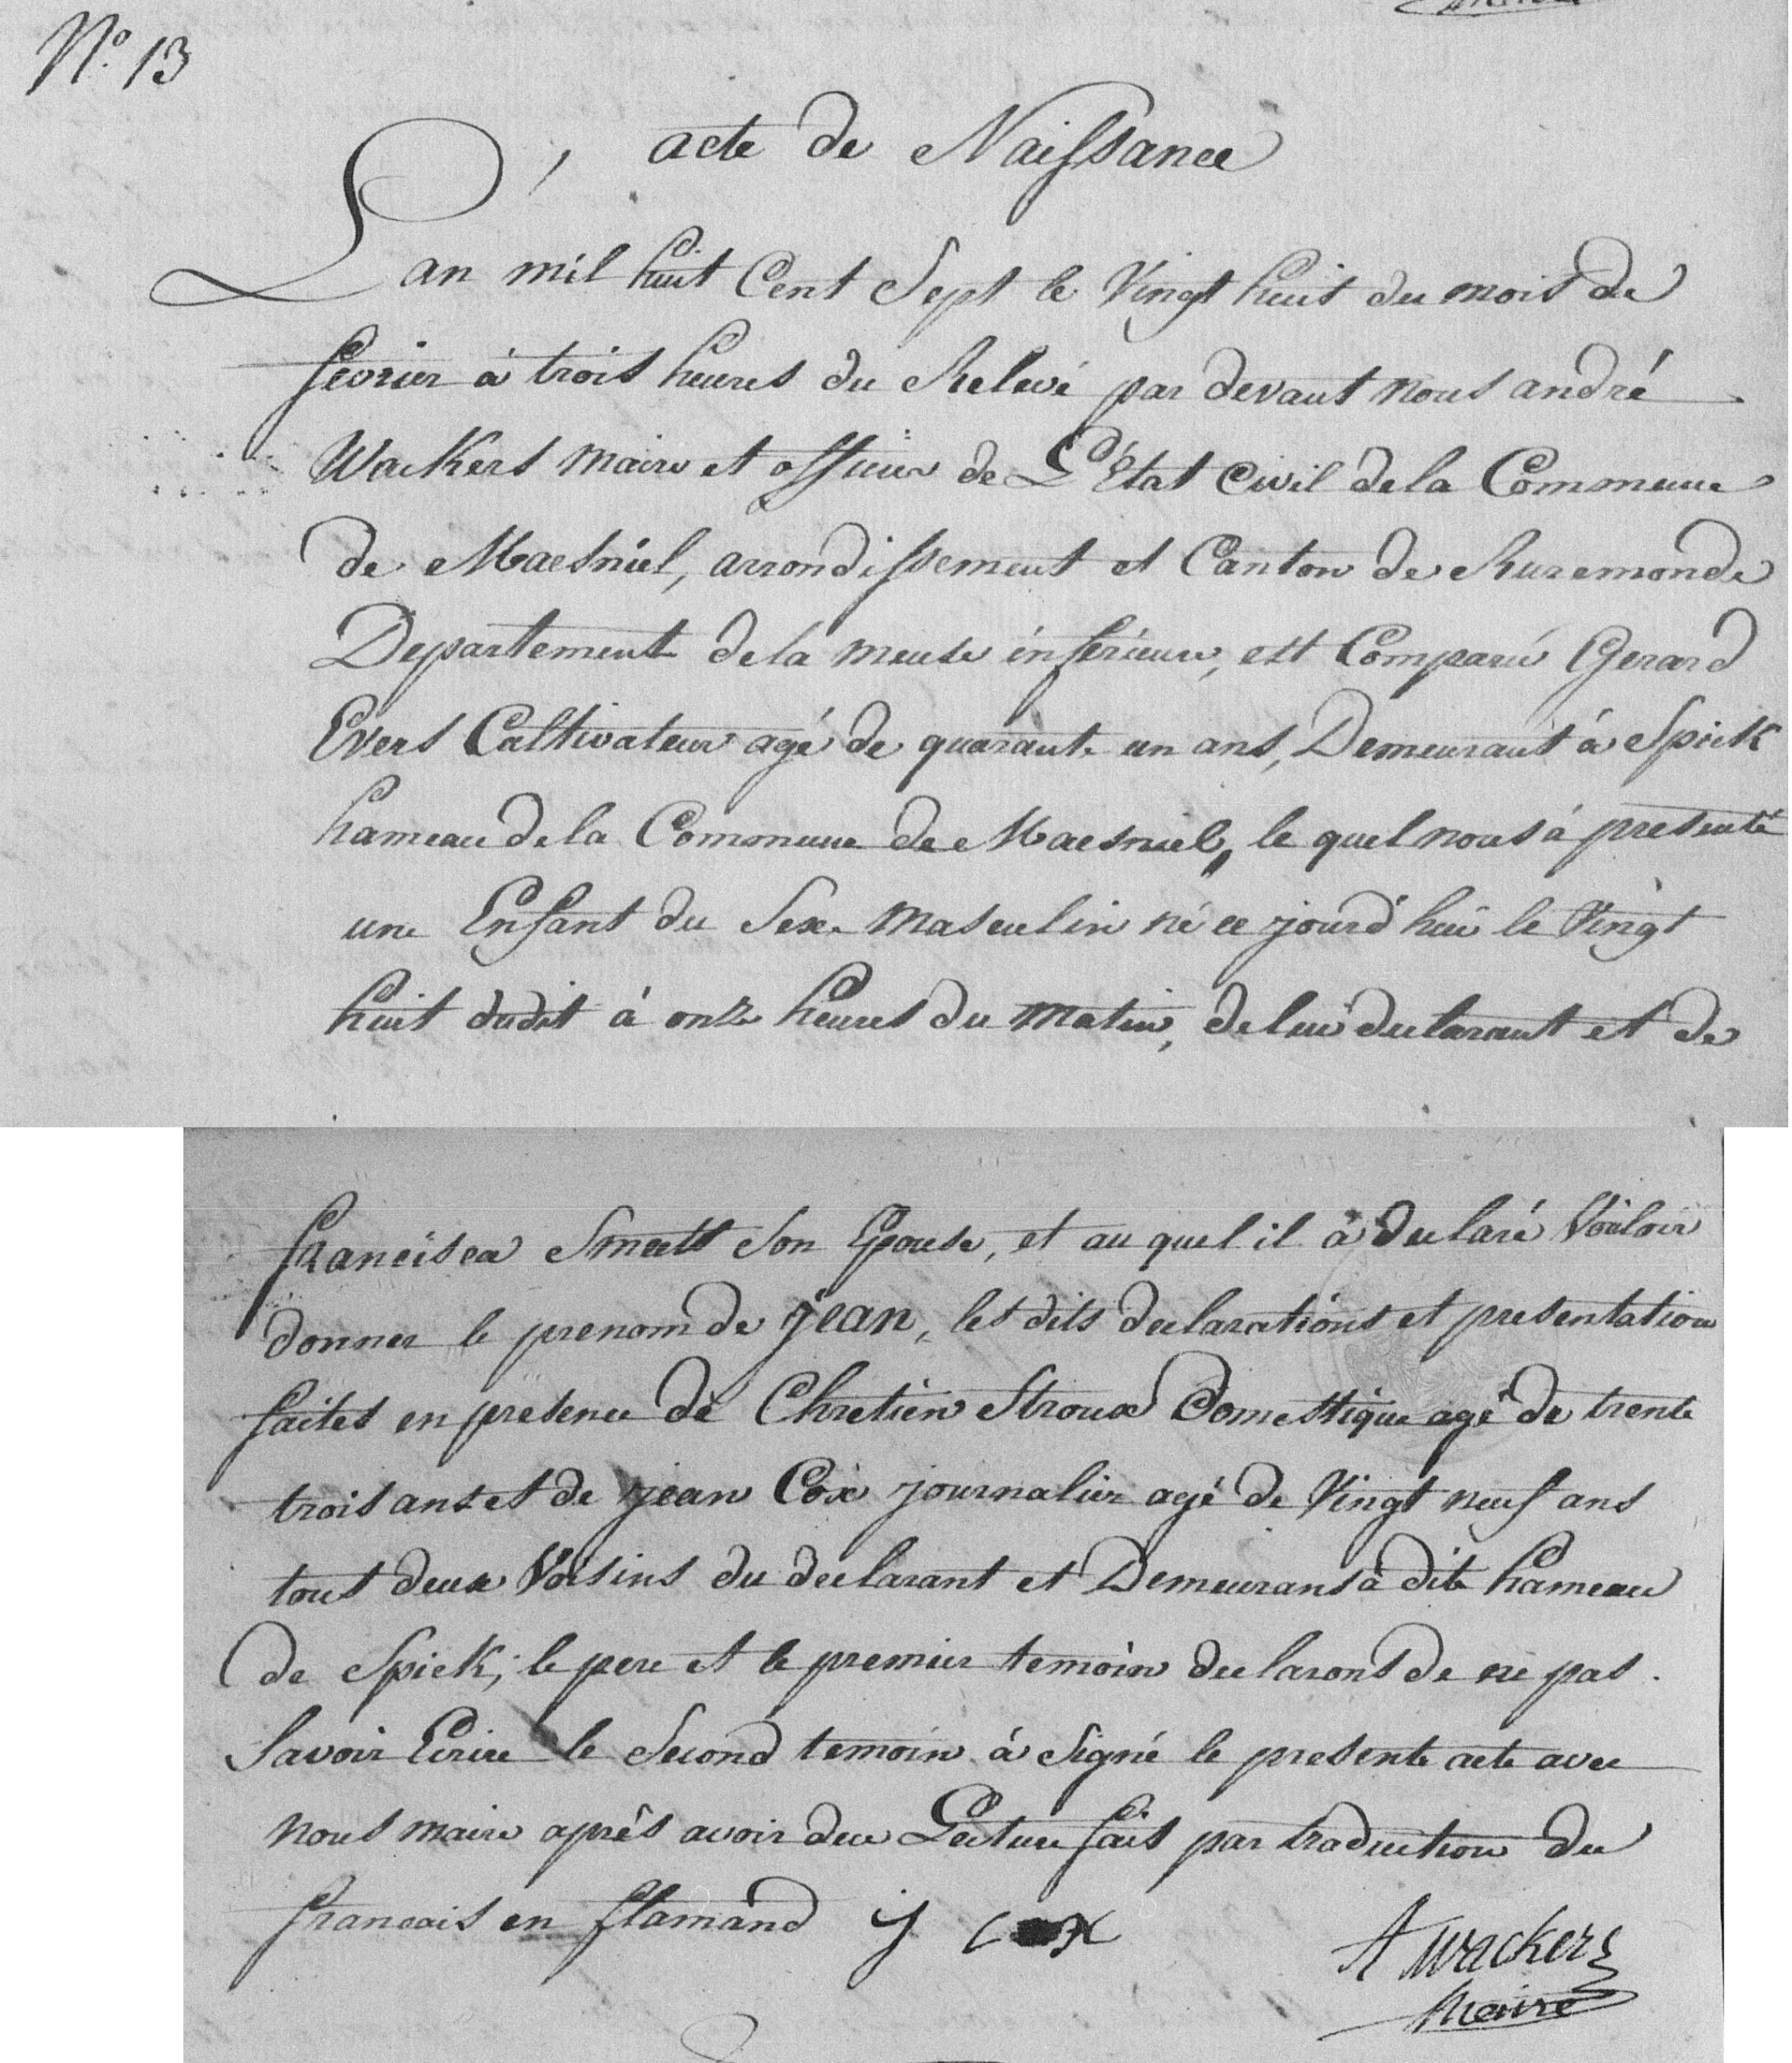 N.º 13
acte de Naissance
L'an mil huit Cent Sept le Vingt huit du mois de
fevrier à trois heures du Relevé par devant nous andré
Wackers maire et officier de L'Etat Civil de la Commune
de Maesniel, arrondissement et Canton de Ruremonde
Departement de la meuse inférieure, est Comparu Gerard
Evers Cultivateur agé de quarante un ans, Demeurant à Spick
hameau de la Commune de Maesniel, le quel nous à presenté
une Enfant du Sexe masculin né ce jourd'hui le Vingt
huit dudit à onze heures du matin, de lui declarant et de
francisca Smeets Son Epouse, et au quel il à declaré Voúloir
donner le prenom de jean, les dits declarations et presentation
faites en presence de Chretien Stroux Domestique agé de trente
trois ans et de jean Cox journalier agé de Vingt neuf ans
tous deux Voisins du declarant et Demeurans à dite hameau
de Spick; le pere et le premier temoin declarons de ne pas
Savoir Ecrire le Second temoin à Signé le presente acte avec
nous maire après avoir due Lecture fais par traduction du
francais en flamand j cox
A Wackers
Maire